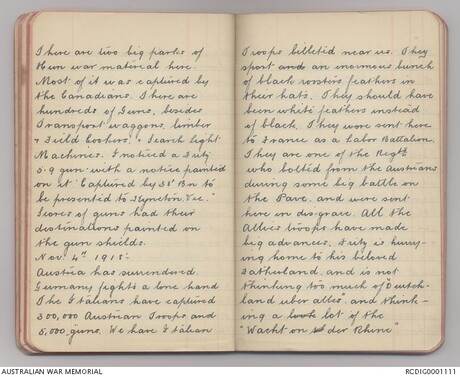 There are two big parks of
Hun war material here.
Most of it was captured by
the Canadians. There are
hundreds of Guns, besides
Transport waggons, limber
+ Field Cookers, + Search Light
Machines. I noticed a Fritz
5.9 gun with a notice painted
on it "Captured by Bn to
be presented to Vic."
Scores of guns had their
destinations painted on
the gun shields.
Nov. 4th 1918:
Austria has surrendered.
Germany fights a lone hand
The Italians have captured
300,000 Austrian Troops and
5,000 guns. We have Italian
Troops billetid near us. They
sport and an enormous bunch
of black rosters feathers in
their hats. They should have
been white feathers instead
of black. They were sent here
to France as a Labor Battalion.
They are one of the Regts
who bolted from the Austrians
during some big battle on
the Pave, and were sent
here in disgrace. All the
Allies troops have made
big advances. Fritz is hurry-
ing home to his beloved
Fatherland, and is not
thinking too much of "Deutch-
land uber alles" and think-
ing a lot of the
"Wacht on der Rhine"
AUSTRALIAN WAR MEMORIAL
RCDIG0001111